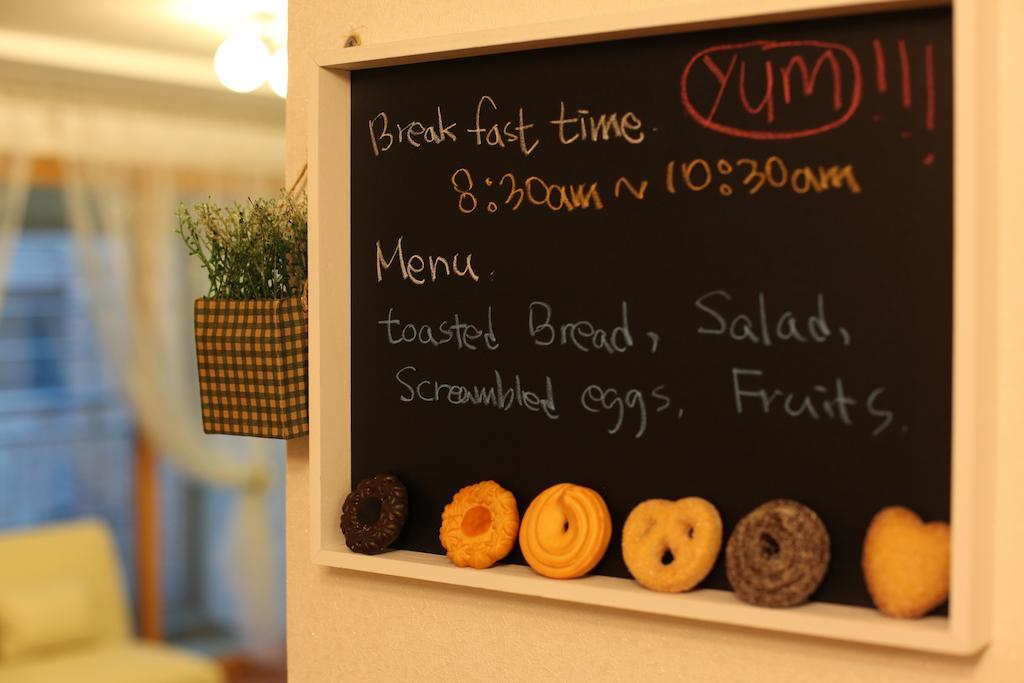 Breakfast time. YUM!!!
8:30am ~ 10:30am
Menu.
toasted Bread, Salad,
Scrambled eggs, Fruits.